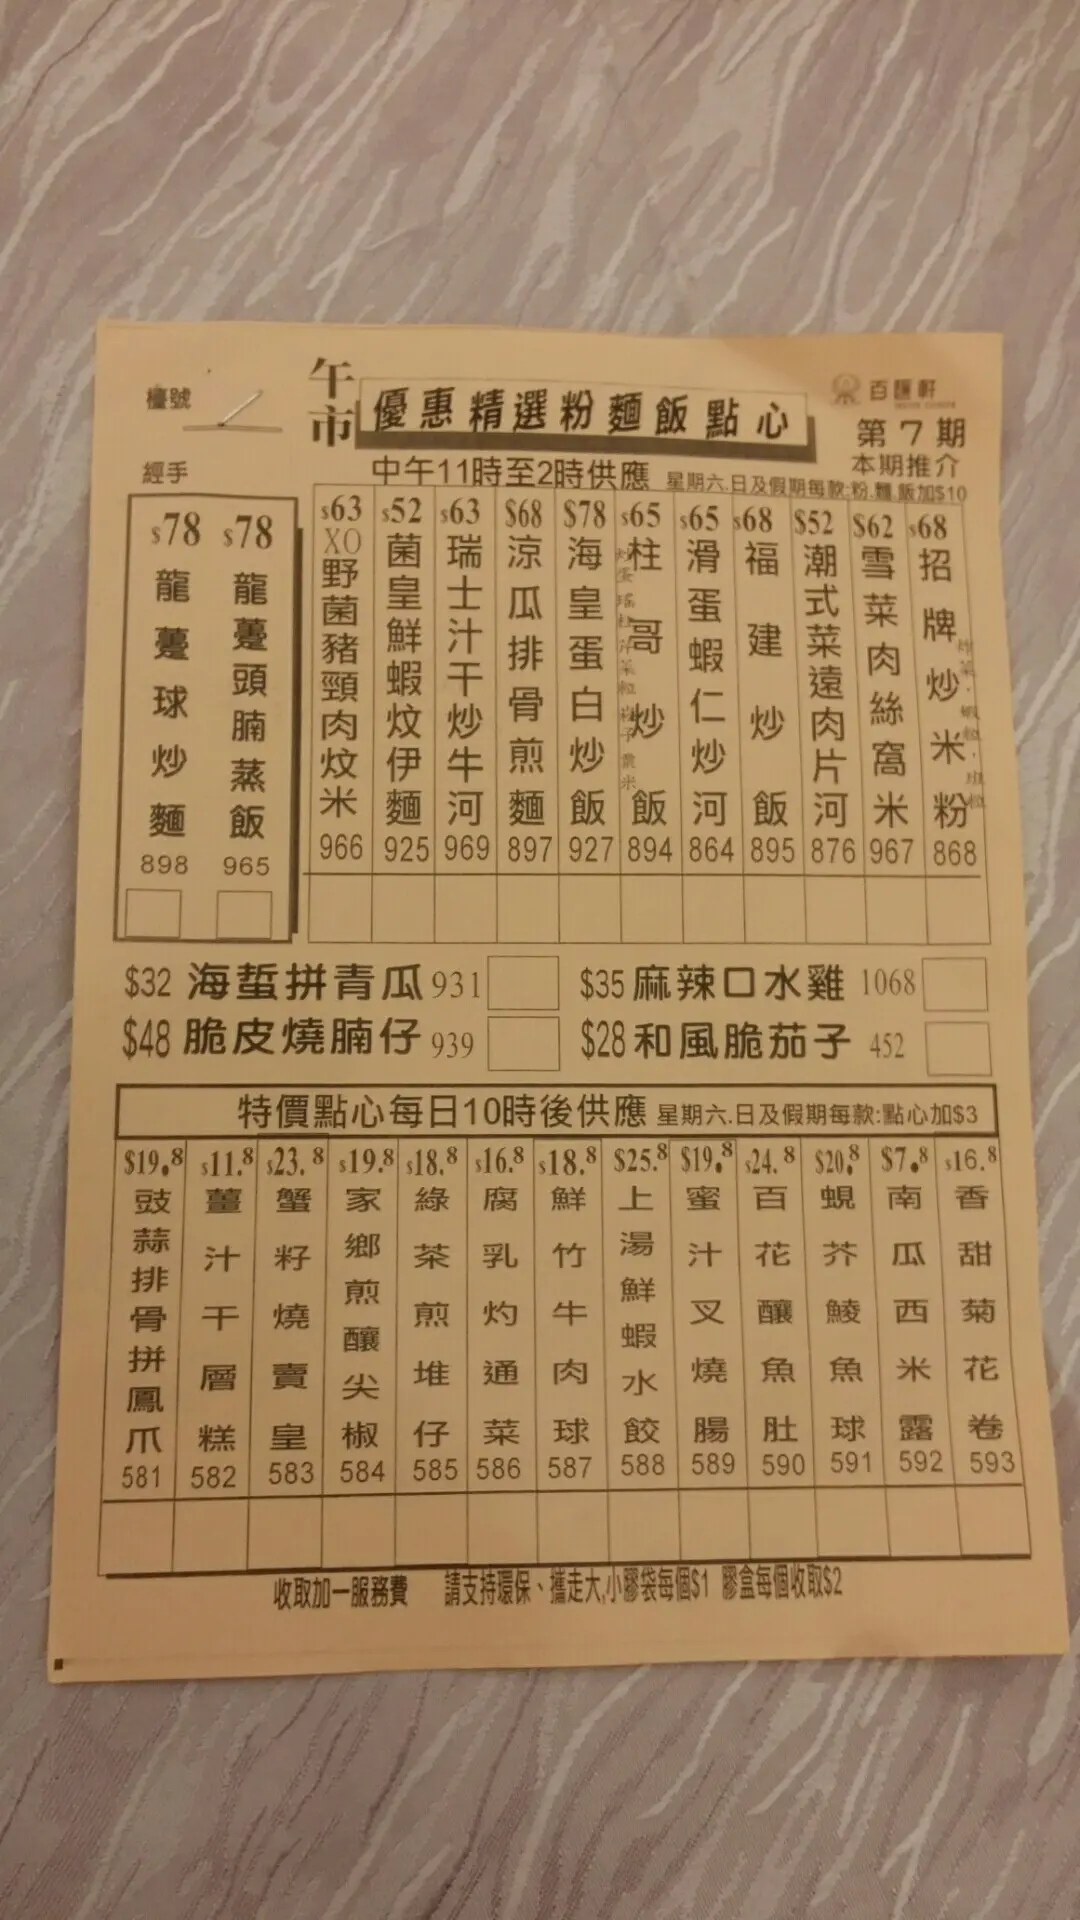 午市
優惠精選粉麵飯點心
檯號
百匯軒
第7期
經手
中午11時至2時供應
本期推介
星期六.日及假期每款:粉.麵.飯加$10
$78 龍躉球炒麵 898
$78 龍躉頭腩蒸飯 965
$63 XO野菌豬頸肉炆米 966
$52 菌皇鮮蝦炆伊麵 925
$63 瑞士汁干炒牛河 969
$68 涼瓜排骨煎麵 897
$78 海皇蛋白炒飯 927
$65 柱哥炒飯 894
$65 滑蛋蝦仁炒河 864
$68 福建炒飯 895
$52 潮式菜遠肉片河 876
$62 雪菜肉絲窩米 967
$68 招牌炒米粉 868
$32 海蜇拼青瓜 931
$35 麻辣口水雞 1068
$48 脆皮燒腩仔 939
$28 和風脆茄子 452
特價點心每日10時後供應 星期六.日及假期每款:點心加$3
$19.8 豉蒜排骨拼鳳爪 581
$11.8 薑汁干層糕 582
$23.8 蟹籽燒賣皇 583
$19.8 家鄉煎釀尖椒 584
$18.8 綠茶煎堆仔 585
$16.8 腐乳灼通菜 586
$18.8 鮮竹牛肉球 587
$25.8 上湯鮮蝦水餃 588
$19.8 蜜汁叉燒腸 589
$24.8 百花釀魚肚 590
$20.8 蜆芥鯪魚球 591
$7.8 南瓜西米露 592
$16.8 香甜菊花卷 593
收取加一服務費 請支持環保、攜走大,小膠袋每個$1 膠盒每個收取$2